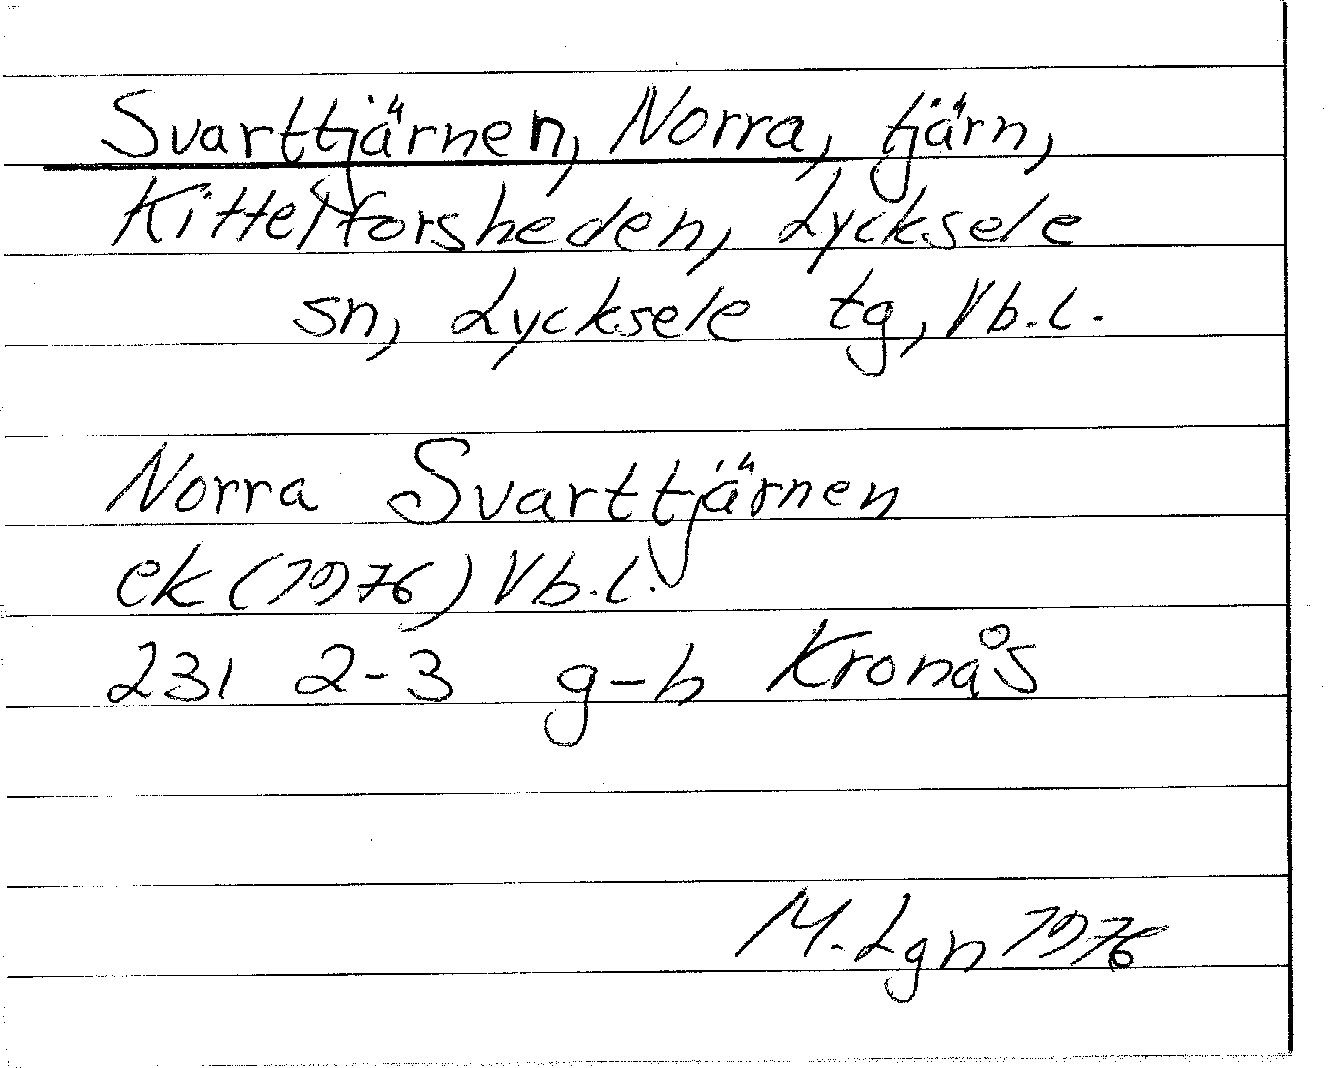 Svarttjärnen, Norra, tjärn,
Kittelforsheden, Lycksele
sn, Lycksele tg, Vb.l.
Norra Svarttjärnen
ek (1976) Vb.l.
231 2-3 g-h Kronås
M. Lgn 1976